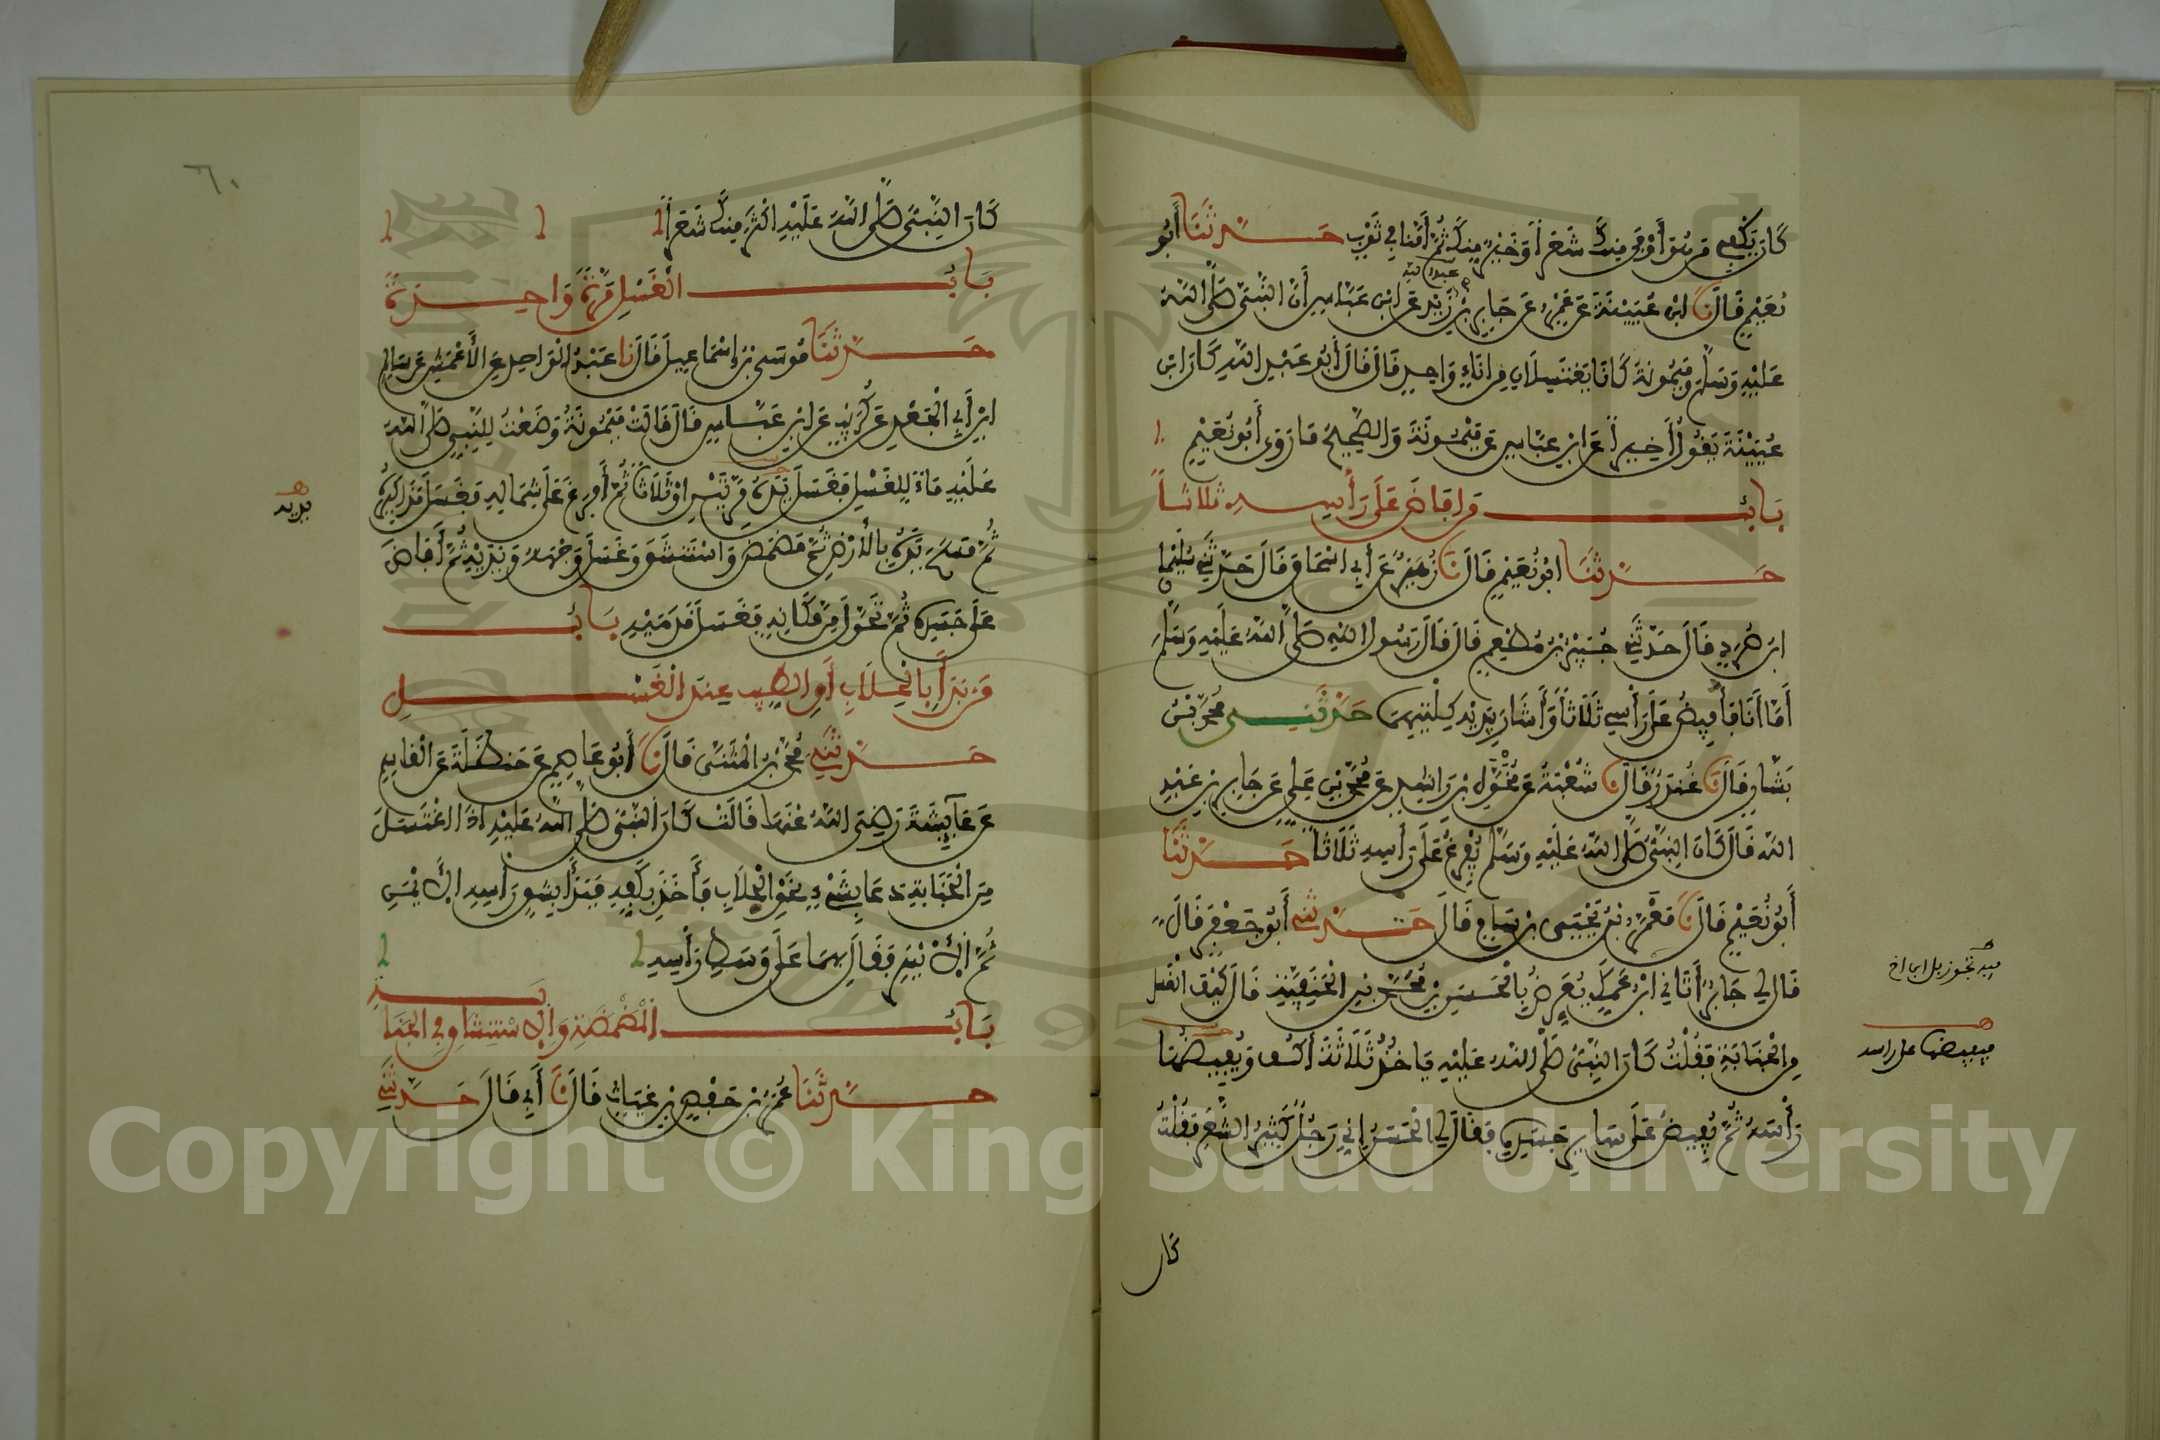 كَانَ يَكْفِي مَنْ هُوَ أَوْفَى مِنْكَ شَعَراً وَخَيْرٌ مِنْكَ ثُمَّ أَمَّنَا فِي ثَوْبٍ حَدَّثَنَا أَبُو
نُعَيْمٍ قَالَ نَا ابْنُ عُيَيْنَةَ عَنْ عَمْرٍو عَنْ جَابِرِ بْنِ زَيْدٍ عَنِ ابْنِ عَبَّاسٍ أَنَّ النَّبِيَّ صَلَّى اللَّهُ
عَلَيْهِ وَسَلَّمَ وَمَيْمُونَةَ كَانَا يَغْتَسِلَانِ مِنْ إِنَاءٍ وَاحِدٍ قَالَ قَالَ أَبُو عَبْدِ اللَّهِ كَانَ ابْنُ
عُيَيْنَةَ يَقُولُ أَخِيراً عَنِ ابْنِ عَبَّاسٍ عَنْ مَيْمُونَةَ وَالصَّحِيحُ مَا رَوَى أَبُو نُعَيْمٍ
بَابُ مَنْ أَفَاضَ عَلَى رَأْسِهِ ثَلَاثاً
حَدَّثَنَا أَبُو نُعَيْمٍ قَالَ نَا زُهَيْرٌ عَنْ أَبِي إِسْحَاقَ قَالَ حَدَّثَنِي سُلَيْمَانُ
ابْنُ صُرَدٍ قَالَ حَدَّثَنِي جُبَيْرُ بْنُ مُطْعِمٍ قَالَ قَالَ رَسُولُ اللَّهِ صَلَّى اللَّهُ عَلَيْهِ وَسَلَّمَ
أَمَّا أَنَا فَأُفِيضُ عَلَى رَأْسِي ثَلَاثاً وَأَشَارَ بِيَدَيْهِ كِلْتَيْهِمَا حَدَّثَنِي مُحَمَّدُ بْنُ
بَشَّارٍ قَالَ نَا غُنْدَرٌ قَالَ نَا شُعْبَةُ عَنْ مُخَوَّلِ بْنِ رَاشِدٍ عَنْ مُحَمَّدِ بْنِ عَلِيٍّ عَنْ جَابِرِ بْنِ عَبْدِ
اللَّهِ قَالَ كَانَ النَّبِيُّ صَلَّى اللَّهُ عَلَيْهِ وَسَلَّمَ يُفْرِغُ عَلَى رَأْسِهِ ثَلَاثاً حَدَّثَنَا
أَبُو نُعَيْمٍ قَالَ نَا مَعْمَرُ بْنُ يَحْيَى بْنِ سَامٍ قَالَ حَدَّثَنِي أَبُو جَعْفَرٍ قَالَ
قَالَ لِي جَابِرٌ أَتَانِي ابْنُ عَمِّكَ يُعَرِّضُ بِالْحَسَنِ بْنِ مُحَمَّدِ بْنِ الْحَنَفِيَّةِ قَالَ كَيْفَ الْغُسْلُ
مِنَ الْجَنَابَةِ فَقُلْتُ كَانَ النَّبِيُّ صَلَّى اللَّهُ عَلَيْهِ يَأْخُذُ ثَلَاثَةَ أَكُفٍّ وَيُفِيضُهَا
رَأْسَهُ ثُمَّ يُفِيضُ عَلَى سَائِرِ جَسَدِهِ فَقَالَ لِي الْحَسَنُ إِنِّي رَجُلٌ كَثِيرُ الشَّعَرِ فَقُلْتُ
كان
فيه تجوز بل ابن اخ
فيفيضها على راسه
كَانَ النَّبِيُّ صَلَّى اللَّهُ عَلَيْهِ أَكْثَرَ مِنْكَ شَعَراً
بَابُ الْغُسْلِ مَرَّةً وَاحِدَةً
حَدَّثَنَا مُوسَى بْنُ إِسْمَاعِيلَ قَالَ نَا عَبْدُ الْوَاحِدِ عَنِ الْأَعْمَشِ عَنْ سَالِمِ
ابْنِ أَبِي الْجَعْدِ عَنْ كُرَيْبٍ عَنِ ابْنِ عَبَّاسٍ قَالَ قَالَتْ مَيْمُونَةُ وَضَعْتُ لِلنَّبِيِّ صَلَّى اللَّهُ
عَلَيْهِ مَاءً لِلْغُسْلِ فَغَسَلَ يَدَهُ مَرَّتَيْنِ أَوْ ثَلَاثاً ثُمَّ أَفْرَغَ عَلَى شِمَالِهِ فَغَسَلَ مَذَاكِيرَهُ
ثُمَّ مَسَحَ يَدَهُ بِالْأَرْضِ ثُمَّ مَضْمَضَ وَاسْتَنْشَقَ وَغَسَلَ وَجْهَهُ وَيَدَيْهِ ثُمَّ أَفَاضَ
عَلَى جَسَدِهِ ثُمَّ تَحَوَّلَ مِنْ مَكَانِهِ فَغَسَلَ قَدَمَيْهِ بَابُ
مَنْ بَدَأَ بِالْحِلَابِ أَوِ الطِّيبِ عِنْدَ الْغُسْلِ
حَدَّثَنِي مُحَمَّدُ بْنُ الْمُثَنَّى قَالَ نَا أَبُو عَاصِمٍ عَنْ حَنْظَلَةَ عَنِ الْقَاسِمِ
عَنْ عَائِشَةَ رَضِيَ اللَّهُ عَنْهَا قَالَتْ كَانَ النَّبِيُّ صَلَّى اللَّهُ عَلَيْهِ إِذَا اغْتَسَلَ
مِنَ الْجَنَابَةِ دَعَا بِشَيْءٍ نَحْوِ الْحِلَابِ فَأَخَذَ بِكَفِّهِ فَبَدَأَ بِشِقِّ رَأْسِهِ الْأَيْمَنِ
ثُمَّ الْأَيْسَرِ فَقَالَ بِهِمَا عَلَى وَسَطِ رَأْسِهِ
بَابُ الْمَضْمَضَةِ وَالِاسْتِنْشَاقِ فِي الْجَنَابَةِ
حَدَّثَنَا عُمَرُ بْنُ حَفْصِ بْنِ غِيَاثٍ قَالَ نَا أَبِي قَالَ حَدَّثَنِي
٦٠
يديه
Copyright © King Saud University